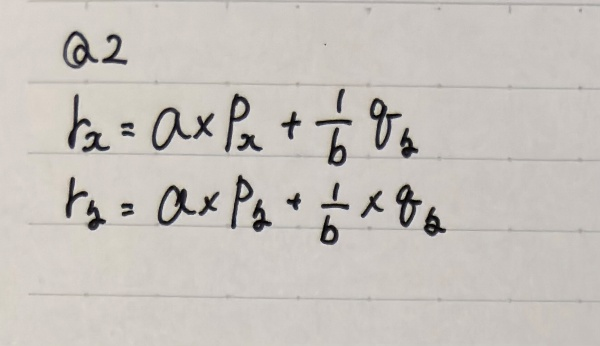 Q2
r_x = a × p_x + 1/b q_y
r_y = a × p_y + 1/b × q_y